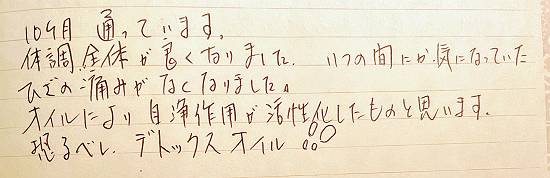 10ヶ月 通っています。
体調全体が良くなりました. いつの間にか気になっていた
ひざの痛みがなくなりました。
オイルにより自浄作用が活性化したものと思います.
恐るべし. デトックス オイル